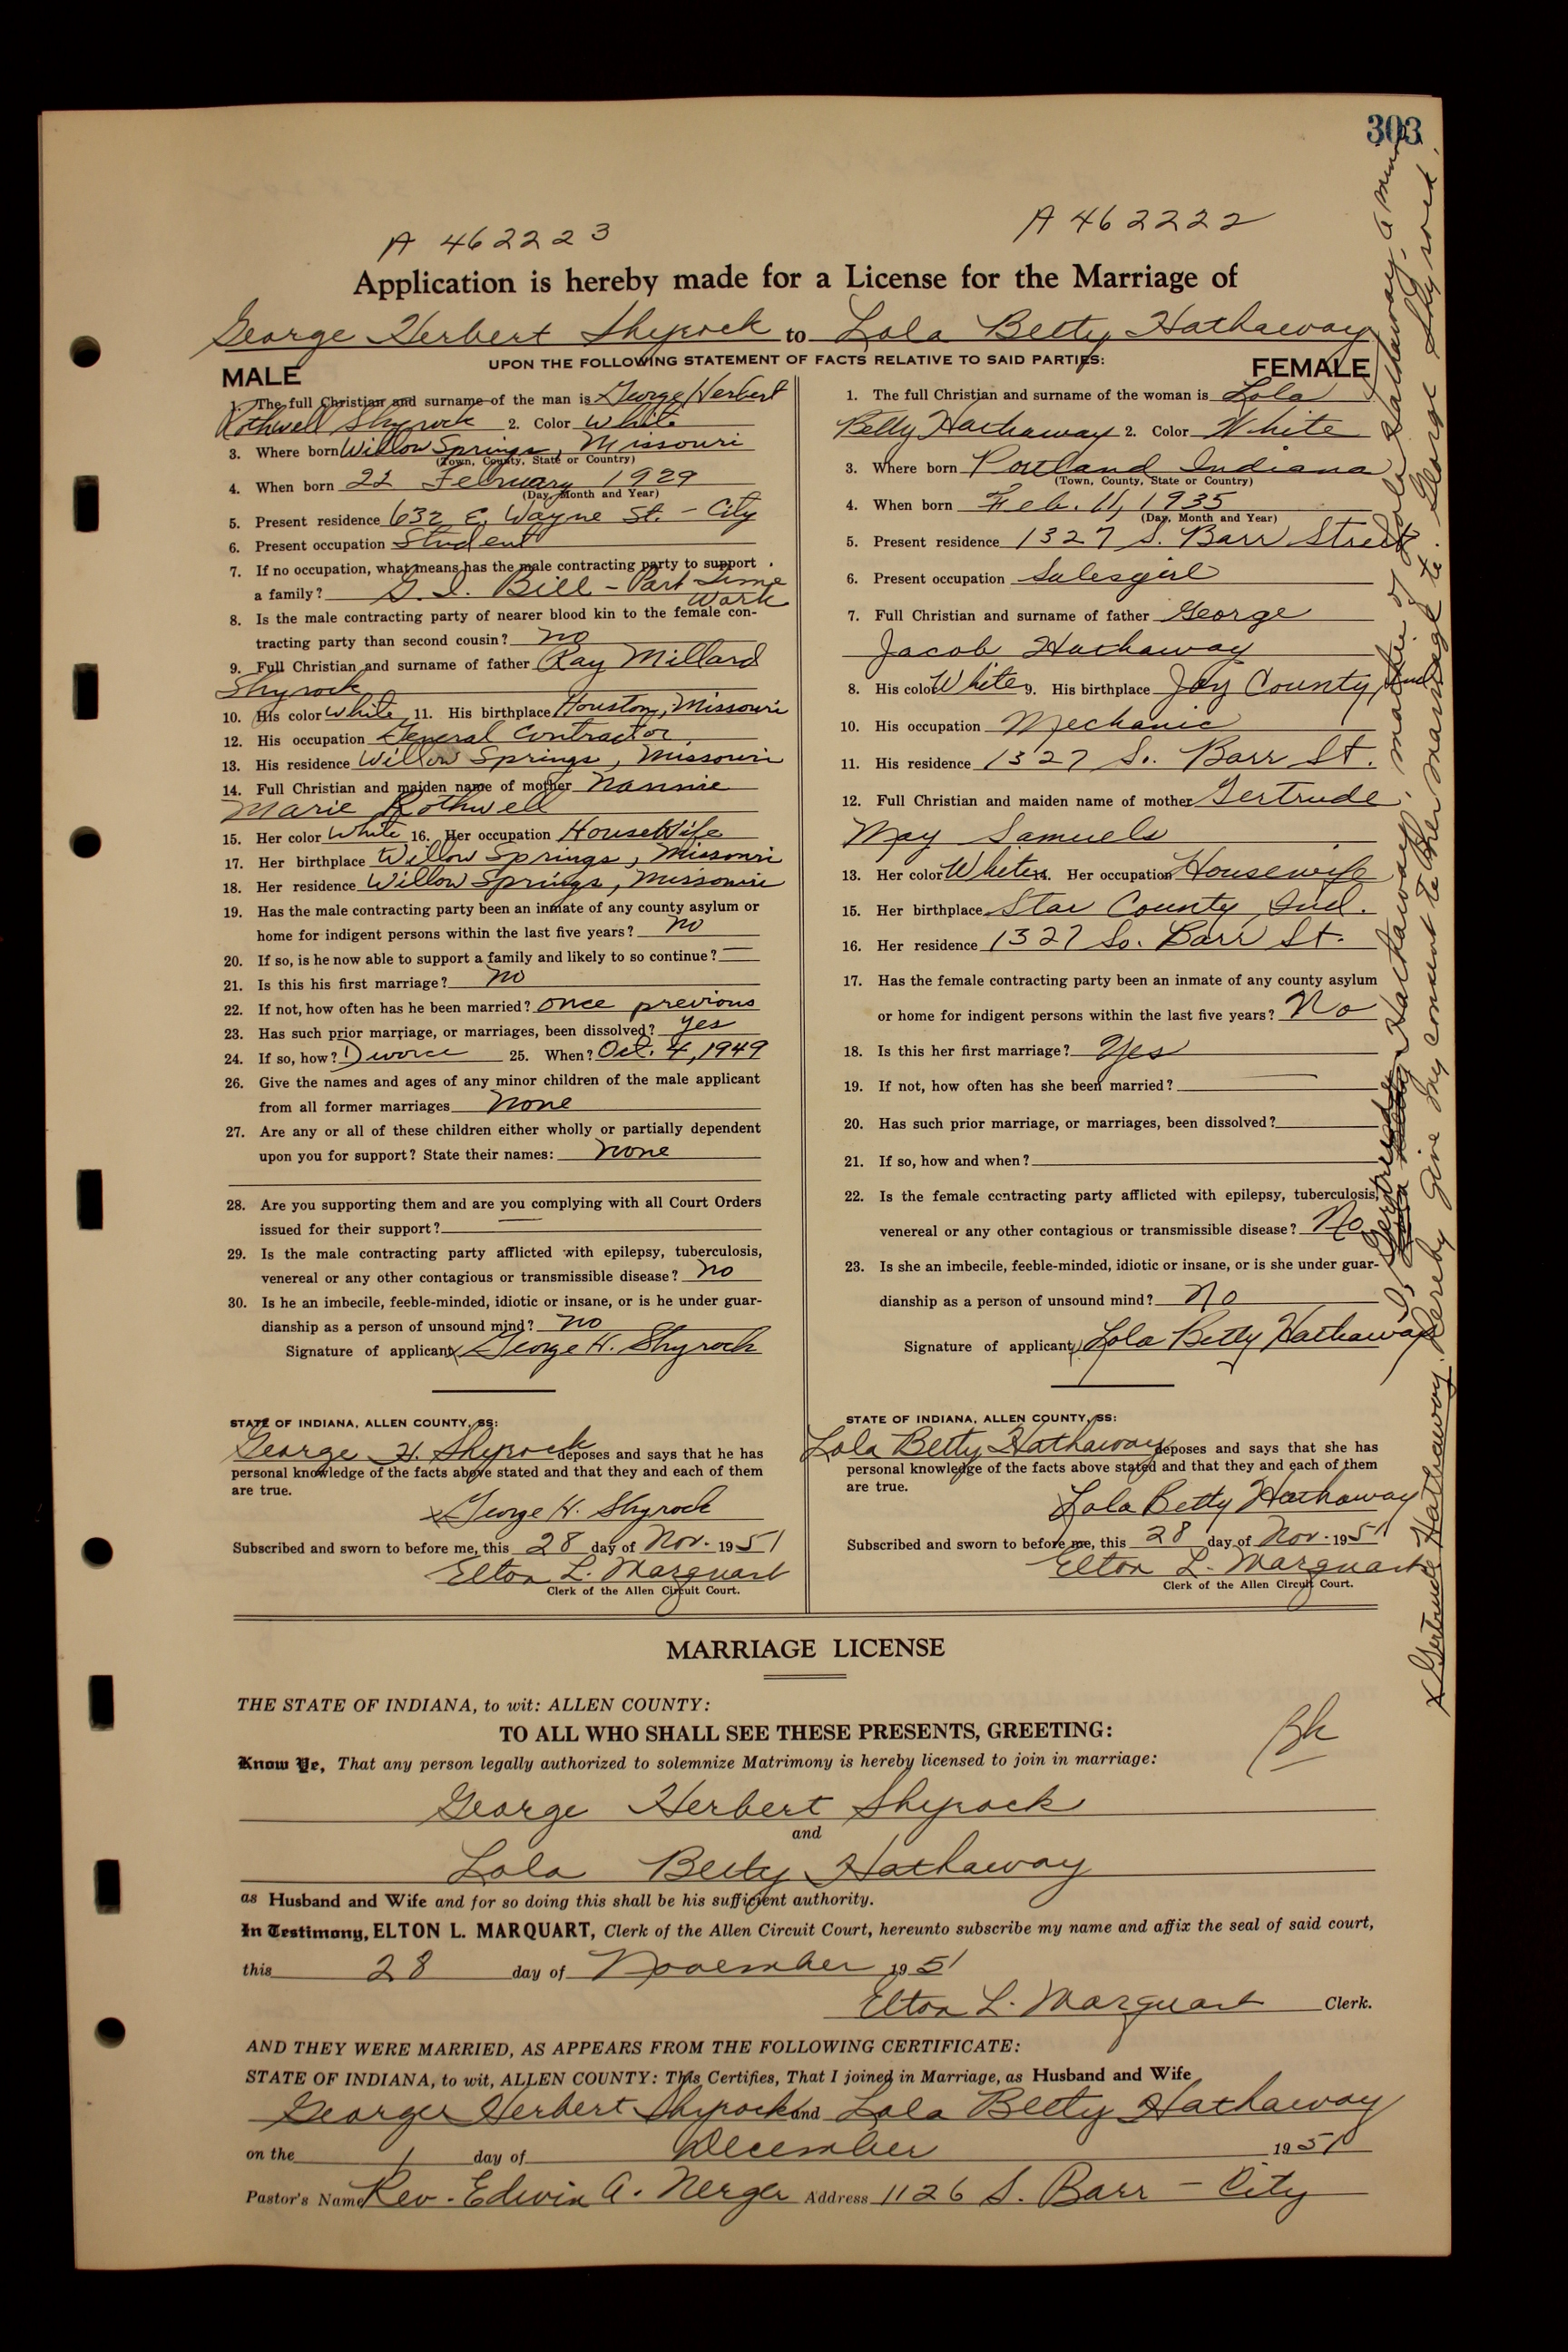 303
A 462223
A 462222
Application is hereby made for a License for the Marriage of
George Herbert Shyrock to Lola Betty Hathaway
UPON THE FOLLOWING STATEMENT OF FACTS RELATIVE TO SAID PARTIES:
MALE
1. The full Christian and surname of the man is George Herbert
Rothwell Shyrock 2. Color White
3. Where born Willow Springs, Missouri
(Town, County, State or Country)
4. When born 22 February 1929
(Day, Month and Year)
5. Present residence 632 E. Wayne St. - City
6. Present occupation Student
7. If no occupation, what means has the male contracting party to support
a family? G. I. Bill - Part Time
Work
8. Is the male contracting party of nearer blood kin to the female con-
tracting party than second cousin? no
9. Full Christian and surname of father Ray Millard
Shyrock
10. His color White 11. His birthplace Houston, Missouri
12. His occupation General Contractor
13. His residence Willow Springs, Missouri
14. Full Christian and maiden name of mother Nannie
Marie Rothwell
15. Her color White 16. Her occupation HouseWife
17. Her birthplace Willow Springs, Missouri
18. Her residence Willow Springs, Missouri
19. Has the male contracting party been an inmate of any county asylum or
home for indigent persons within the last five years? no
20. If so, is he now able to support a family and likely to so continue? —
21. Is this his first marriage? no
22. If not, how often has he been married? once previous
23. Has such prior marriage, or marriages, been dissolved? yes
24. If so, how? Divorce 25. When? Oct. 4, 1949
26. Give the names and ages of any minor children of the male applicant
from all former marriages none
27. Are any or all of these children either wholly or partially dependent
upon you for support? State their names: none
28. Are you supporting them and are you complying with all Court Orders
issued for their support? —
29. Is the male contracting party afflicted with epilepsy, tuberculosis,
venereal or any other contagious or transmissible disease? no
30. Is he an imbecile, feeble-minded, idiotic or insane, or is he under guar-
dianship as a person of unsound mind? no
Signature of applicant x George H. Shyrock
STATE OF INDIANA, ALLEN COUNTY, SS:
George H. Shyrock deposes and says that he has
personal knowledge of the facts above stated and that they and each of them
are true.
x George H. Shyrock
Subscribed and sworn to before me, this 28 day of Nov. 1951
Elton L. Marquart
Clerk of the Allen Circuit Court.
FEMALE
1. The full Christian and surname of the woman is Lola
Betty Hathaway 2. Color White
3. Where born Portland Indiana
(Town, County, State or Country)
4. When born Feb. 11, 1935
(Day, Month and Year)
5. Present residence 1327 S. Barr Street
6. Present occupation Salesgirl
7. Full Christian and surname of father George
Jacob Hathaway
8. His color White 9. His birthplace Jay County, Ind
10. His occupation Mechanic
11. His residence 1327 So. Barr St.
12. Full Christian and maiden name of mother Gertrude
May Samuels
13. Her color White 14. Her occupation Housewife
15. Her birthplace Star County Ind.
16. Her residence 1327 So. Barr St.
17. Has the female contracting party been an inmate of any county asylum
or home for indigent persons within the last five years? No
18. Is this her first marriage? Yes
19. If not, how often has she been married? —
20. Has such prior marriage, or marriages, been dissolved?
21. If so, how and when?
22. Is the female contracting party afflicted with epilepsy, tuberculosis,
venereal or any other contagious or transmissible disease? No
23. Is she an imbecile, feeble-minded, idiotic or insane, or is she under guar-
dianship as a person of unsound mind? No
Signature of applicant x Lola Betty Hathaway
STATE OF INDIANA, ALLEN COUNTY, SS:
Lola Betty Hathaway deposes and says that she has
personal knowledge of the facts above stated and that they and each of them
are true.
Lola Betty Hathaway
Subscribed and sworn to before me, this 28 day of Nov. 1951
Elton L. Marquart
Clerk of the Allen Circuit Court.
I, Gertrude Hathaway, mother of Lola Hathaway, a minor
hereby give my consent to her marriage to George Shyrock.
x Gertrude Hathaway
MARRIAGE LICENSE
THE STATE OF INDIANA, to wit: ALLEN COUNTY:
TO ALL WHO SHALL SEE THESE PRESENTS, GREETING:
Know Ye, That any person legally authorized to solemnize Matrimony is hereby licensed to join in marriage:
George Herbert Shyrock
and
Lola Betty Hathaway
as Husband and Wife and for so doing this shall be his sufficient authority.
In Testimony, ELTON L. MARQUART, Clerk of the Allen Circuit Court, hereunto subscribe my name and affix the seal of said court,
this 28 day of November 1951
Elton L. Marquart Clerk.
AND THEY WERE MARRIED, AS APPEARS FROM THE FOLLOWING CERTIFICATE:
STATE OF INDIANA, to wit, ALLEN COUNTY: This Certifies, That I joined in Marriage, as Husband and Wife
George Herbert Shyrock and Lola Betty Hathaway
on the 1 day of December 1951
Pastor's Name Rev. Edwin A. Nerger Address 1126 S. Barr - City